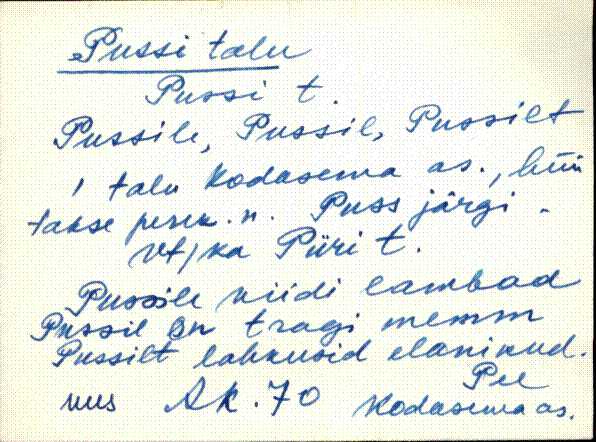 Pussi talu
Pussi t.
Pussile, Pussil, Pussilt
1 talu Kodasema as., hüü
takse peren. n. Puss järgi.
vt/ka Püri t.
Pussile viidi lambad
Pussil on tragi memm
Pussilt lahkusid elanikud.
Pee
uus AK. 70 Kodasema as.